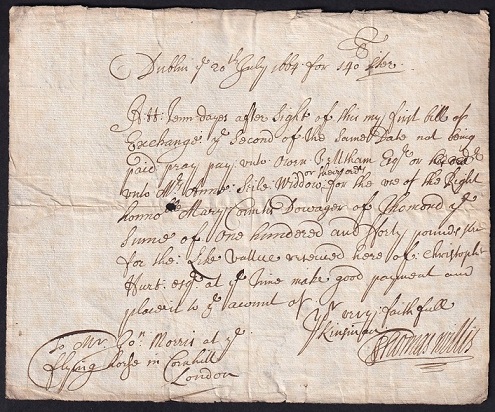 Dublin ye 20th July 1664 for 140 £ ster
Att Tenn dayes after Sight of this my first bill of
Exchange ye Second of the Same Date not being
paid pray pay unto Owen Feltham Esqr or
unto Mrs Anne Seile Widdow or theire order for the use of the Right
honnoble Mary Countss Dowager of Thomond ye
Sume of One hundred and forty pounds ster
for the Like vallue received here of Christophr
Hurt esqr at ye time make good payment and
place it to ye account of
Yr very faithfull
Kinsman
Thomas Willis
To Mr Jon Morris at ye
flying horse in Cornhill
London